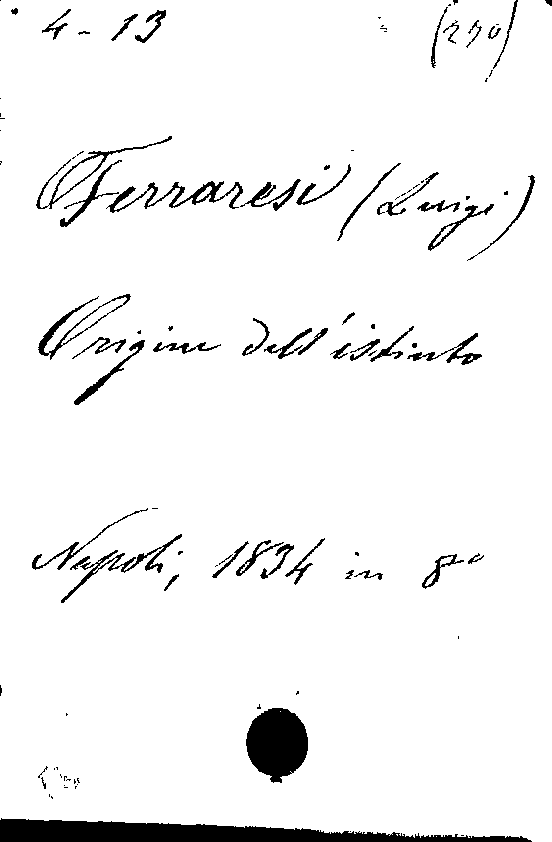 4-13 (270)
Ferraresi (Luigi)
Origine dell'istinto
Napoli, 1834 in 8°